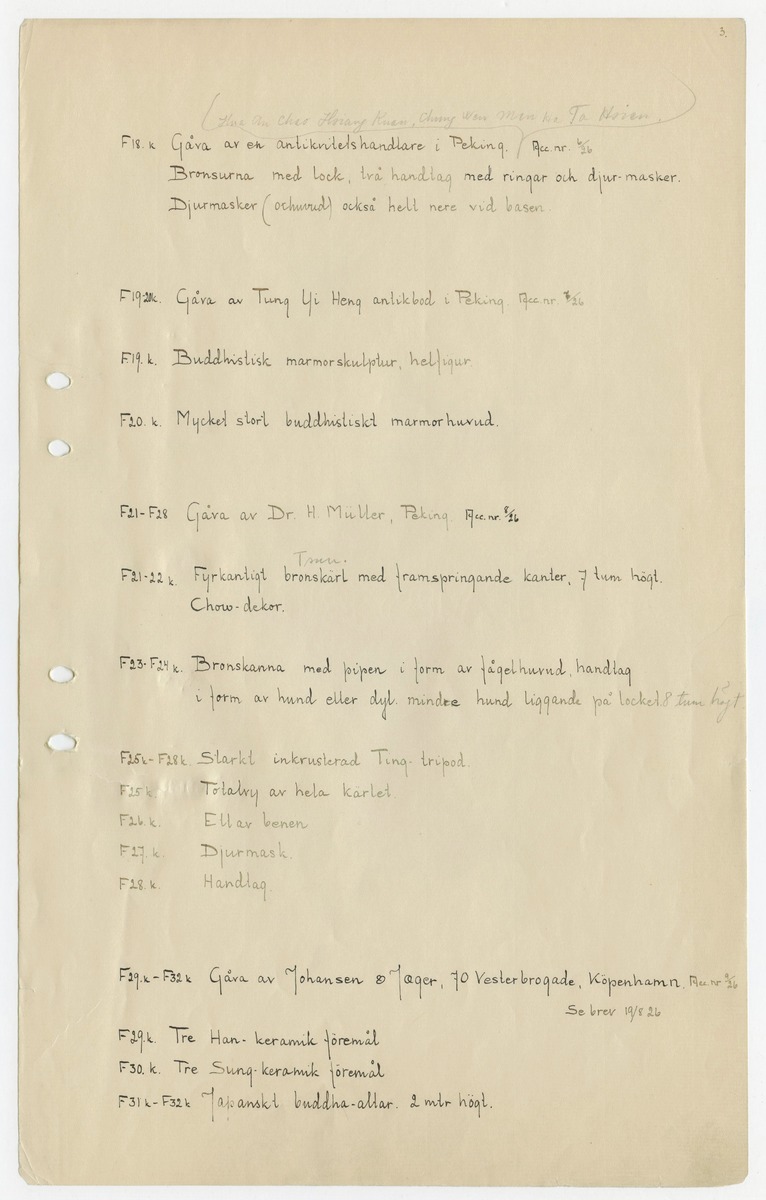 3.
(Hua An Chao Hsiang Kuan, Chung Wen Men Ta Hsien.)
F18. k Gåva av en antikvitetshandlare i Peking. Acc. nr. 6/26
Bronsurna med lock, två handtag med ringar och djur-masker.
Djurmasker (ochuvud) också helt nere vid basen.
F19-20k. Gåva av Tung Yi Heng antikbod i Peking. Acc. nr. 7/26
F19. k. Buddhistisk marmorskulptur, helfigur.
F20. k. Mycket stort buddhistiskt marmorhuvud.
F21-F28 Gåva av Dr. H. Müller, Peking. Acc. nr. 8/26
Tsun.
F21-22 k. Fyrkantigt bronskärl med framspringande kanter, 7 tum högt.
Chow-dekor.
F23-F24 k. Bronskanna med pipen i form av fågelhuvud, handtag
i form av hund eller dyl. mindre hund liggande på locket. 8 tum högt.
F25k-F28k. Starkt inkrusterad Ting-tripod.
F25 k. Totalvy av hela kärlet.
F26. k. Ett av benen
F27. k. Djurmask.
F28. k. Handtag.
F29.k-F32 k Gåva av Johansen & Jæger, 70 Vesterbrogade, Köpenhamn. Acc. nr 9/26
Se brev 19/8 26
F29.k. Tre Han-keramik föremål
F30. k. Tre Sung-keramik föremål
F31 k-F32 k Japanskt buddha-altar. 2 mtr högt.